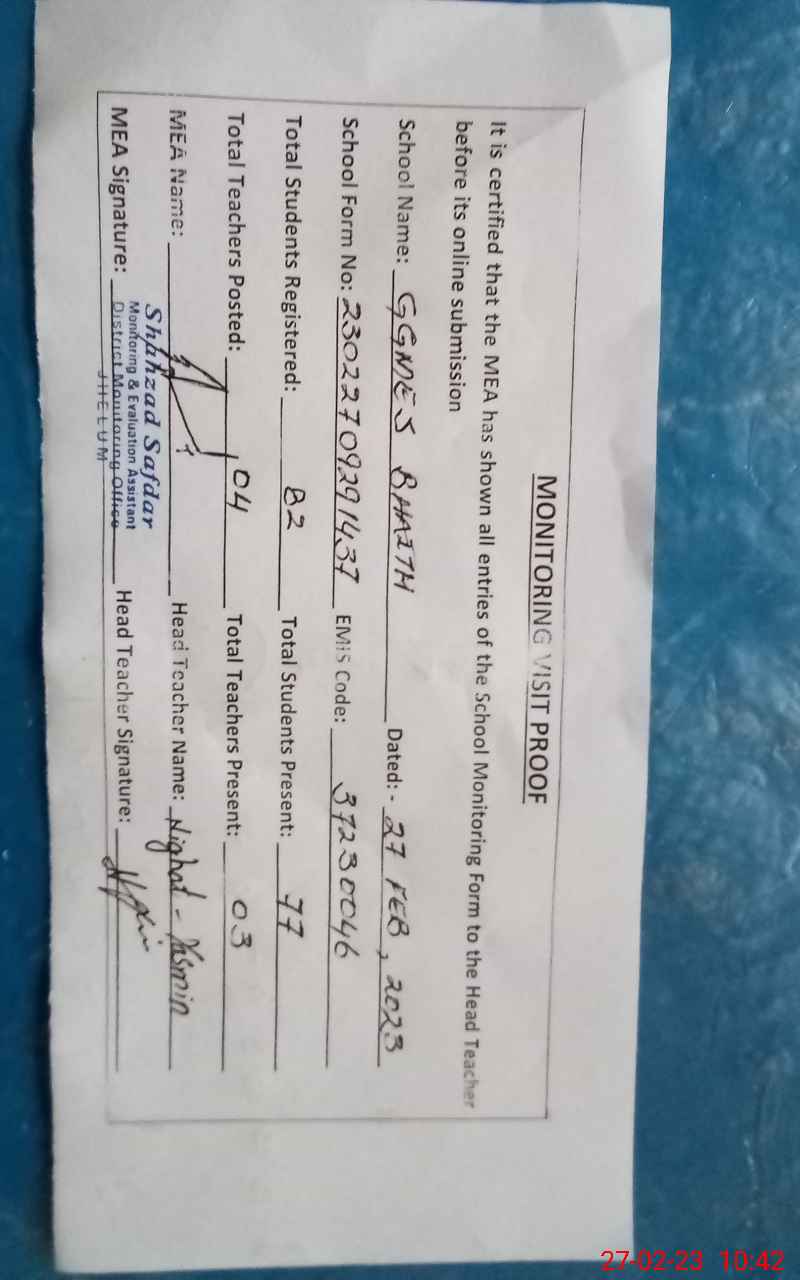 MONITORING VISIT PROOF
It is certified that the MEA has shown all entries of the School Monitoring Form to the Head Teacher
before its online submission
School Name: GGMES BHAITH Dated:- 27 FEB, 2023
School Form No: 23022709291437 EMIS Code: 37230046
Total Students Registered: 82 Total Students Present: 77
Total Teachers Posted: 04 Total Teachers Present: 03
MEA Name: Head Teacher Name: Nighat - Yasmin
Shahzad Safdar
Monitoring & Evaluation Assistant
District Monitoring Office
JHELUM
MEA Signature: Head Teacher Signature:
27-02-23 10:42